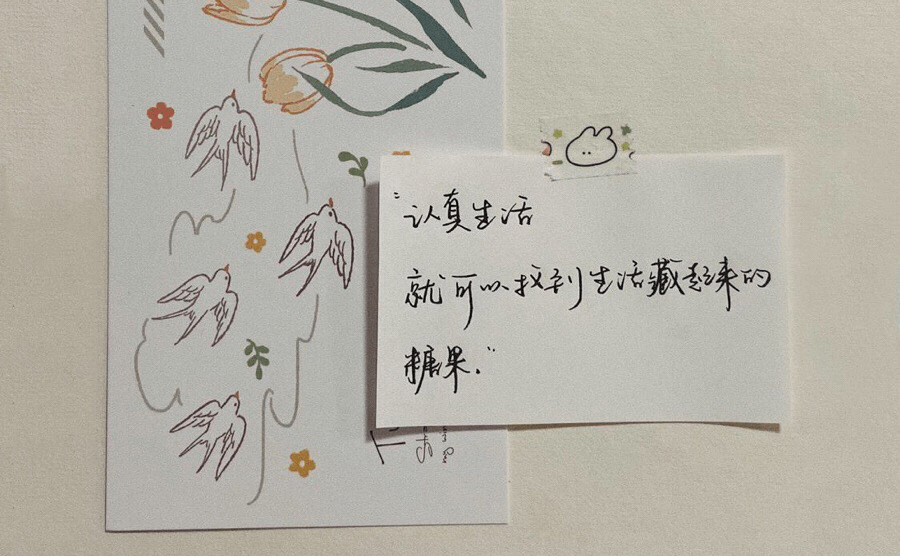 "认真生活
就可以找到生活藏起来的
糖果."